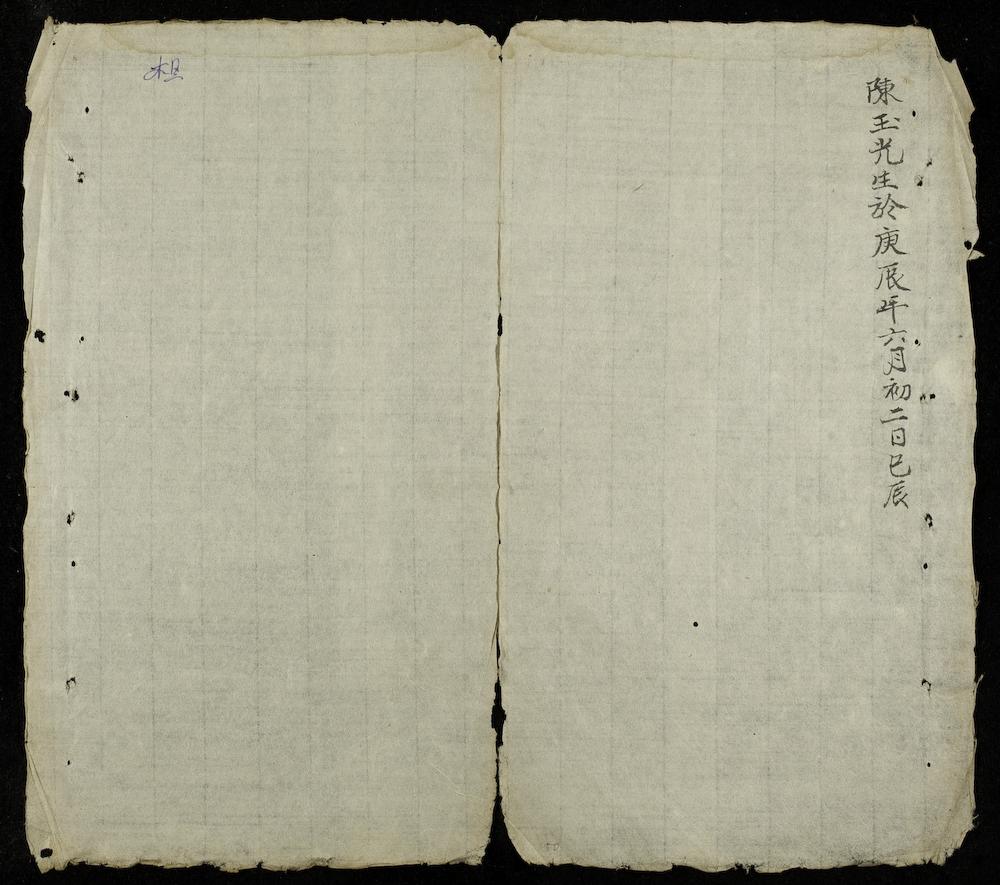 陳玉光生於庚辰年六月初二日巳辰